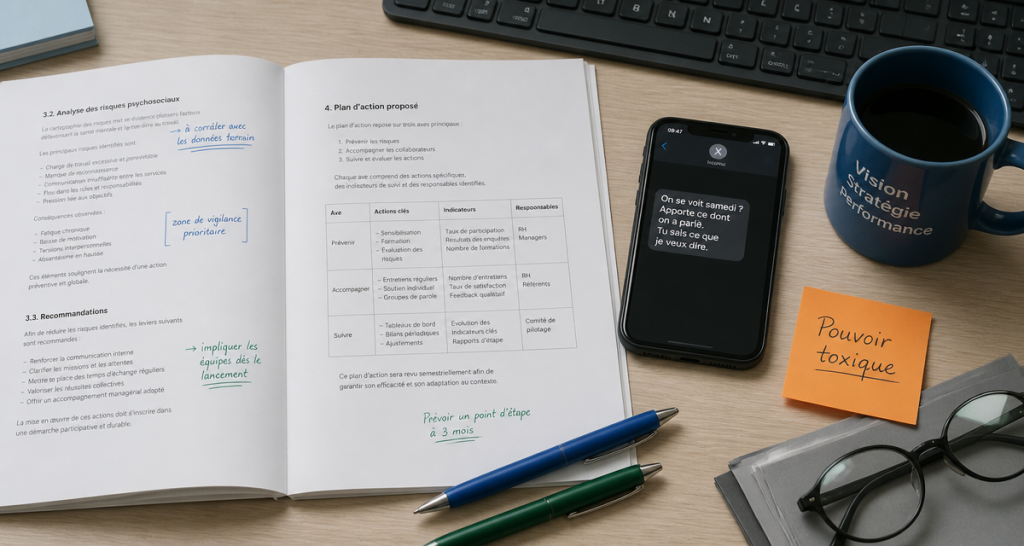 3.2. Analyse des risques psychosociaux
La cartographie des risques met en évidence plusieurs facteurs
détériorant la santé mentale et le bien-être au travail.
Les principaux risques identifiés sont :
– Charge de travail excessive et persistante
– Manque de reconnaissance
– Communication insuffisante entre les services
– Flou dans les rôles et responsabilités
– Pression liée aux objectifs
Conséquences observées :
– Fatigue chronique
– Baisse de motivation
– Tensions interpersonnelles
– Absentéisme en hausse
Ces éléments soulignent la nécessité d'une action
préventive et globale.
→ à corréler avec
les données terrain
[zone de vigilance
prioritaire]
3.3. Recommandations
Afin de réduire les risques identifiés, les leviers suivants
sont recommandés :
– Renforcer la communication interne
– Clarifier les missions et les attentes
– Mettre en place des temps d'échange réguliers
– Valoriser les réussites collectives
– Offrir un accompagnement managérial adapté
La mise en œuvre de ces actions doit s'inscrire dans
une démarche participative et durable.
→ impliquer les
équipes dès le
lancement
4. Plan d'action proposé
Le plan d'action repose sur trois axes principaux :
1. Prévenir les risques
2. Accompagner les collaborateurs
3. Suivre et évaluer les actions
Chaque axe comprend des actions spécifiques,
des indicateurs de suivi et des responsables identifiés.
Axe Actions clés Indicateurs Responsables
Prévenir
– Sensibilisation
– Formation
– Évaluation des
risques
Taux de participation
Résultats des enquêtes
Nombre de formations
RH
Managers
Accompagner
– Entretiens réguliers
– Soutien individuel
– Groupes de parole
Nombre d'entretiens
Taux de satisfaction
Feedback qualitatif
RH
Référents
Suivre
– Tableaux de bord
– Bilans périodiques
– Ajustements
Évolution des
indicateurs clés
Rapports d'étape
Comité de
pilotage
Ce plan d'action sera revu semestriellement afin de
garantir son efficacité et son adaptation au contexte.
Prévoir un point d'étape
à 3 mois
09:47
X
On se voit samedi ?
Apporte ce dont
on a parlé.
Tu sais ce que
je veux dire.
Vision
Stratégie
Performance
Pouvoir
toxique